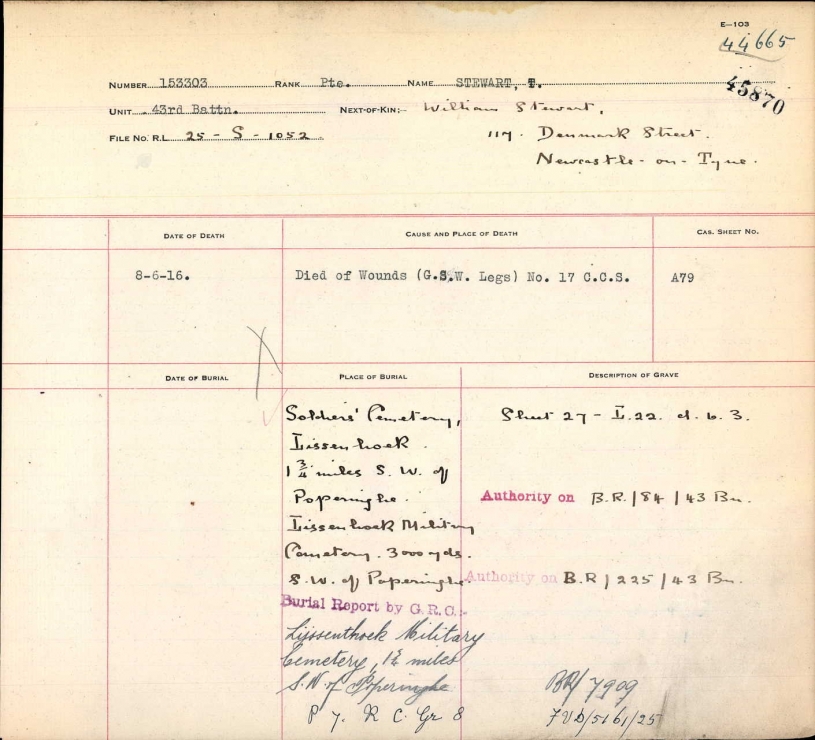 E—103
44665
45870
NUMBER 153303 RANK Pte. NAME STEWART, T.
UNIT 43rd Battn. NEXT-OF-KIN:- William Stewart,
FILE NO. R.L. 25 - S - 1052 117. Denmark Street.
Newcastle - on - Tyne.
DATE OF DEATH CAUSE AND PLACE OF DEATH CAS. SHEET NO.
8-6-16. Died of Wounds (G.S.W. Legs) No. 17 C.C.S. A79
DATE OF BURIAL PLACE OF BURIAL DESCRIPTION OF GRAVE
Soldiers' Cemetery, Sheet 27 - L.22. d. 6. 3.
Lissenhoek.
1 3/4 miles S. W. of
Poperinghe. Authority on B.R./84/43 Bn.
Lissenhoek Military
Cemetery. 3000 yds.
S.W. of Poperinghe. Authority on B.R/225/43 Bn.
Burial Report by G.R.C.:-
Lijssenthoek Military
Cemetery, 1¾ miles
S.W. of Poperinghe BR/7909
P 7. R C. Gr 8 /5161/25